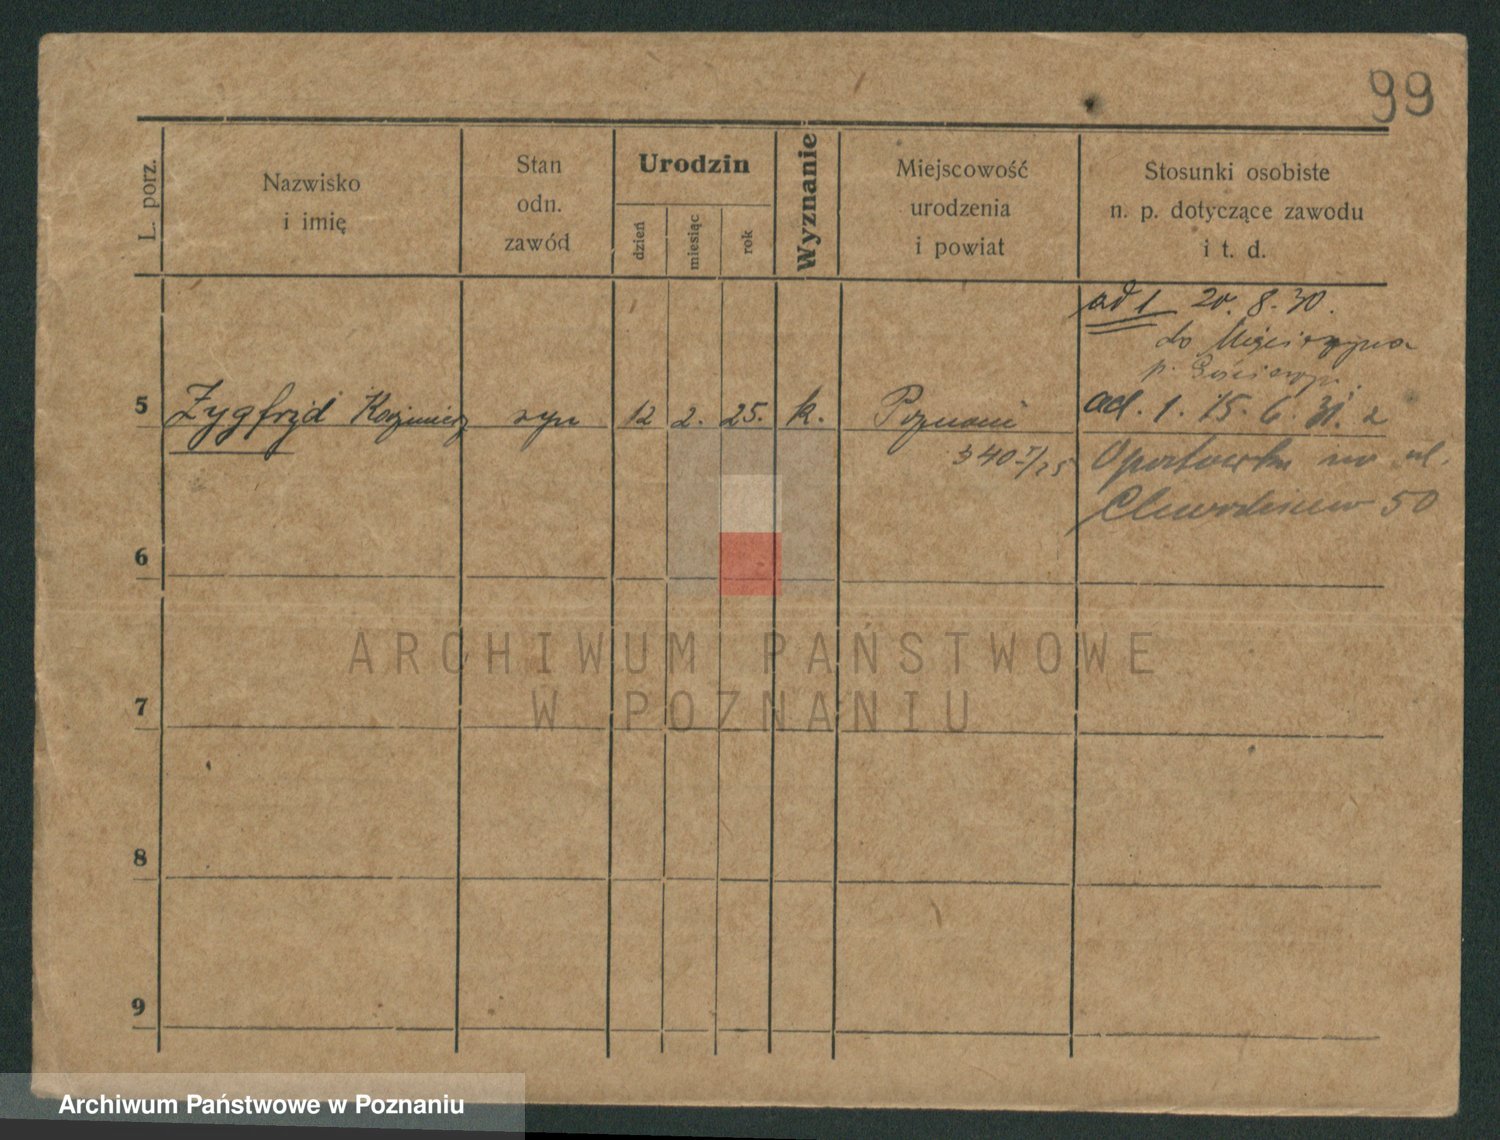 99
L. porz.
Nazwisko
i imię
Stan
odn.
zawód
Urodzin
dzień
miesiąc
rok
Wyznanie
Miejscowość
urodzenia
i powiat
Stosunki osobiste
n. p. dotyczące zawodu
i t. d.
ad 1 20. 8. 30.
do
p.
5 Zygfryd Kazimierz syn 12 2. 25. k. Poznań ad. 1. 15. 6. 31. z
ul.
50
6
7
8
9
ARCHIWUM PAŃSTWOWE
W POZNANIU
Archiwum Państwowe w Poznaniu